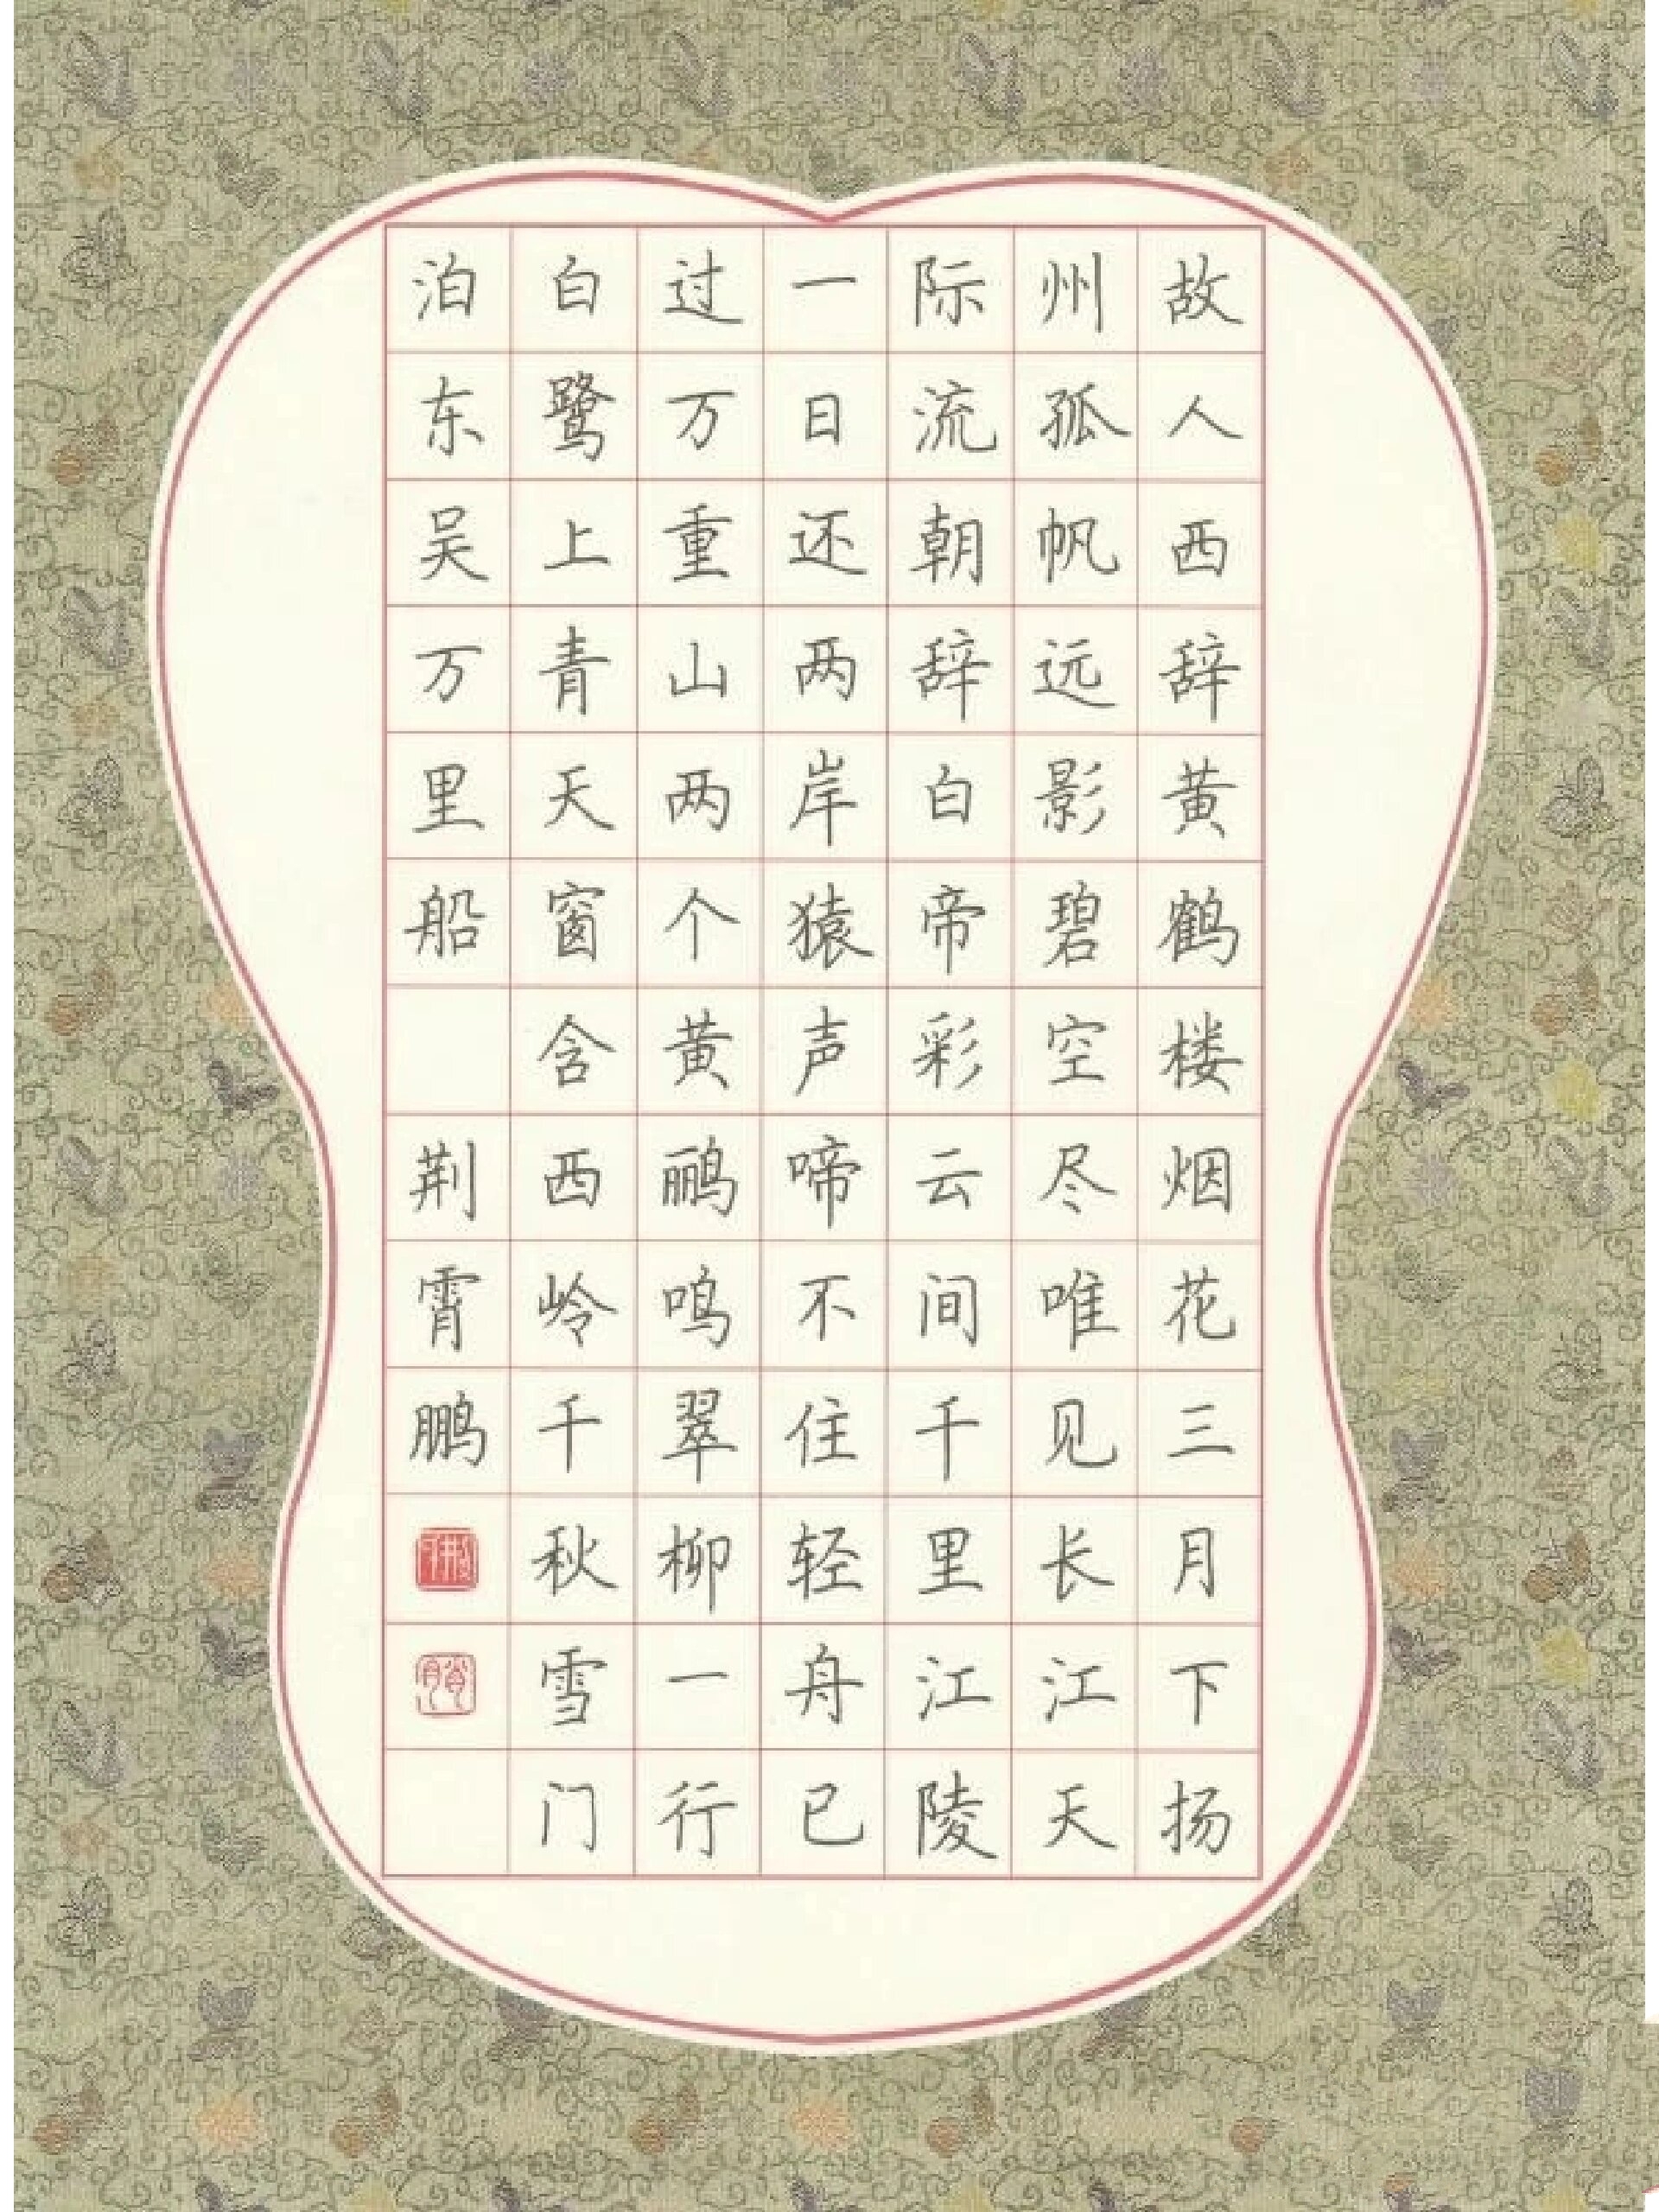 故人西辞黄鹤楼烟花三月下扬
州孤帆远影碧空尽唯见长江天
际流朝辞白帝彩云间千里江陵
一日还两岸猿声啼不住轻舟已
过万重山两个黄鹂鸣翠柳一行
白鹭上青天窗含西岭千秋雪门
泊东吴万里船 荆霄鹏